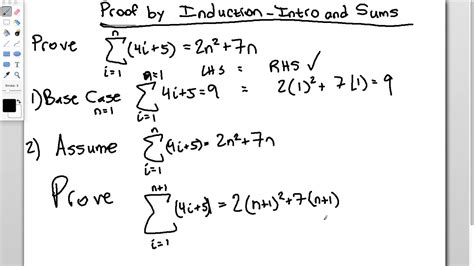 Proof by Induction - Intro and Sums
Prove n∑i=1 (4i+5) = 2n²+7n
LHS = RHS ✓
1) Base Case n=1 n=1∑i=1 4i+5 = 9 = 2(1)² + 7(1) = 9
2) Assume n∑i=1 (4i+5) = 2n²+7n
Prove n+1∑i=1 (4i+5) = 2(n+1)²+7(n+1)